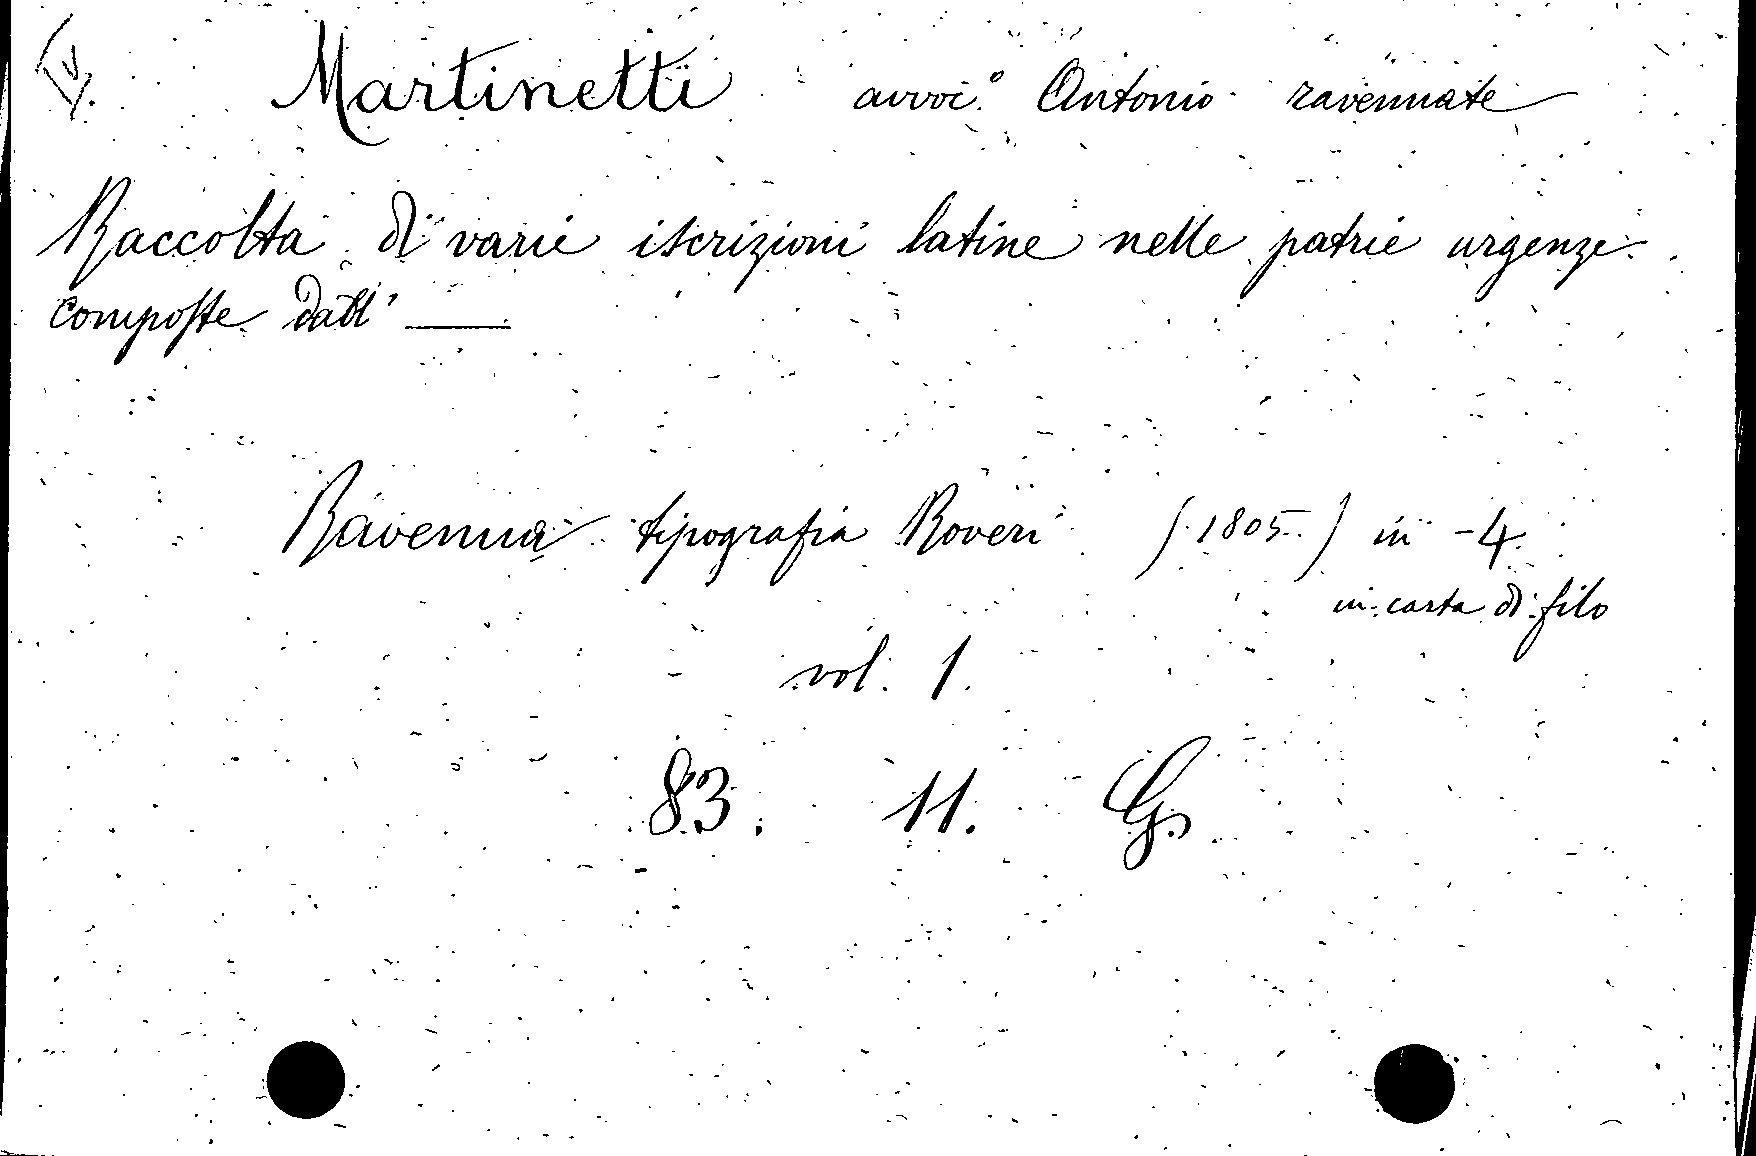 Martinetti avvoc.° Antonio ravennate
Raccolta di varie iscrizioni latine nelle patrie urgenze
composte dall' ——
Ravenna tipografia Roveri (1805.) in -4.
in carta di filo
vol. 1.
83. 11. G.